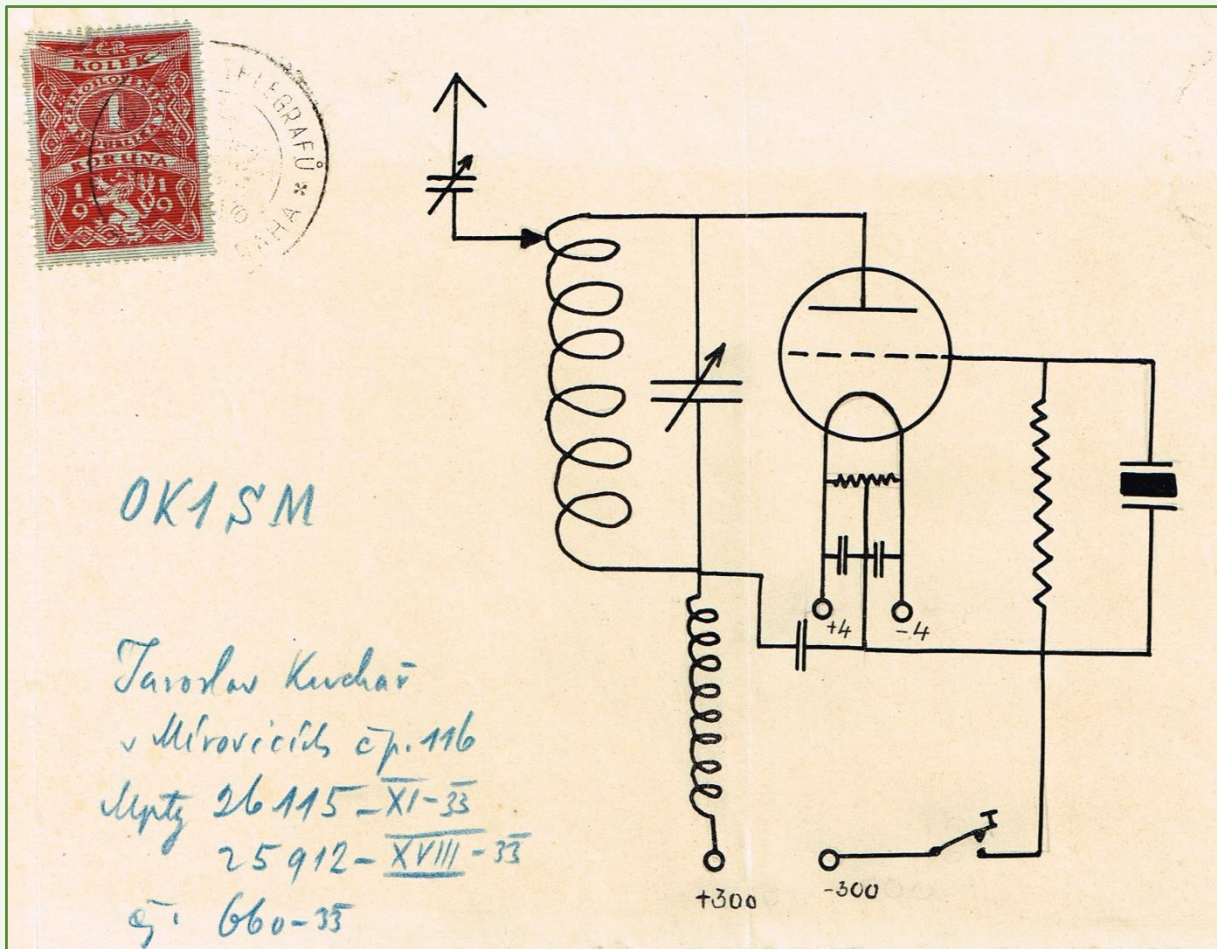 ČR
KOLEK
1
KORUNA
19 19
TELEGRAFŮ *
PRAHA
OK1SM
Jaroslav Kuchař
v Mirovicích čp. 116
Mpty 26115-XI-33
25912-XVIII-33
čj. 660-35
+4
-4
+300
-300